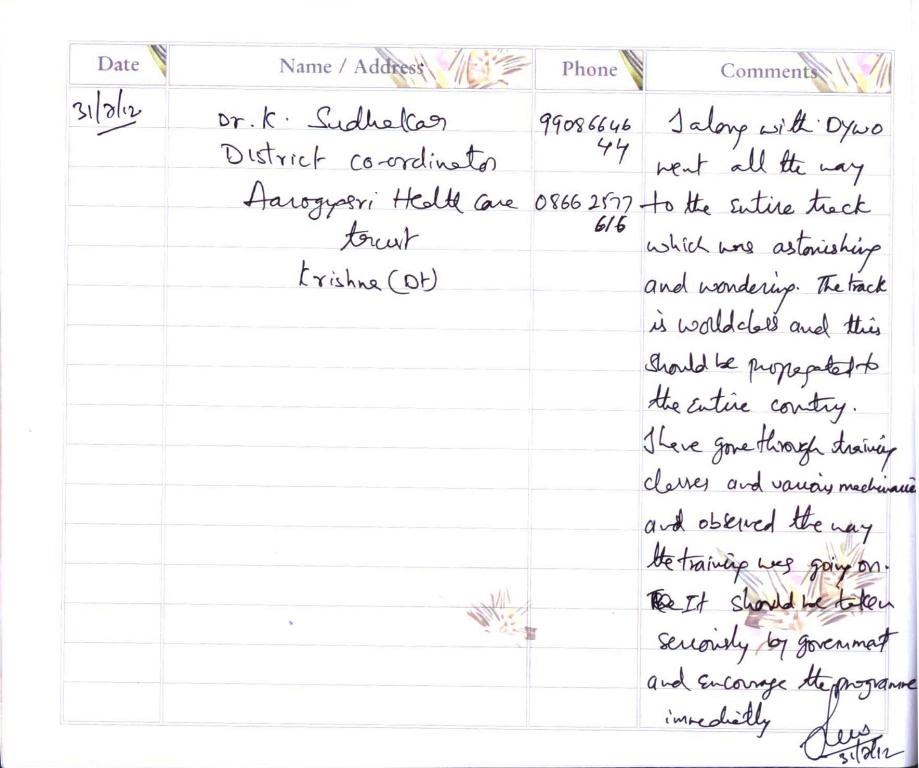 Date Name / Address Phone Comments
31/8/12 Dr. K. Sudhakar 99086646 I along with DYWO
District co-ordinator 44 went all the way
Aarogyasri Health Care 0866 2577 to the entire track
trust 616 which was astonishing
Krishna (Dt) and wondering. The track
is worldclass and this
should be propagated to
the entire contry.
I have gone through training
classes and various machinaries
and observed the way
the training was going on.
It should be taken
seriously by government
and encourage the programme
immediatly
31/8/12